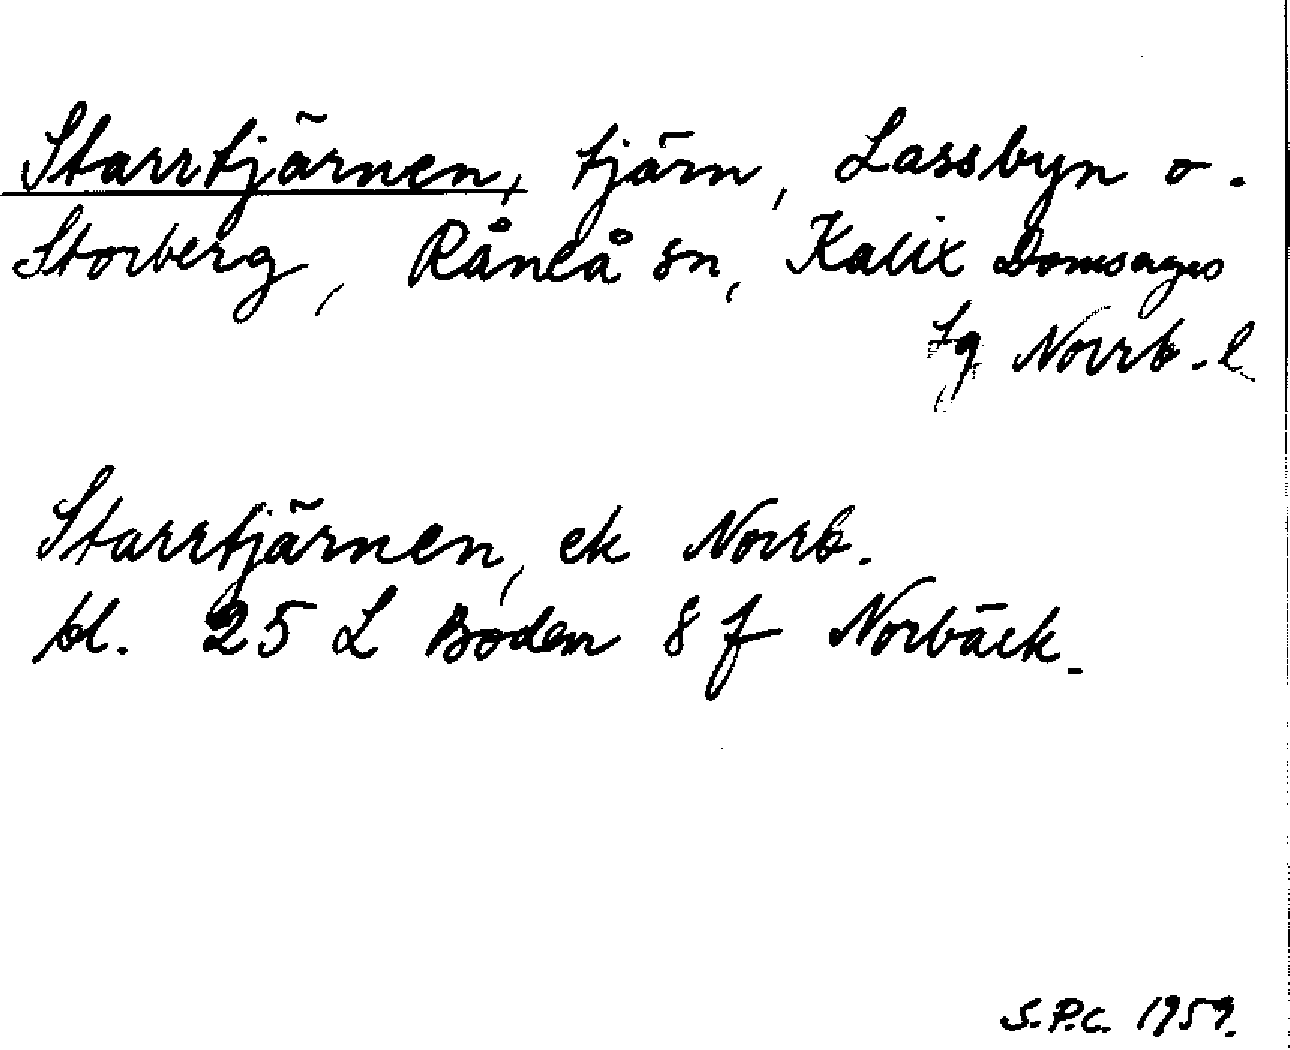 Starrtjärnen, tjärn, Lassbyn o.
Storberg, Råneå sn, Kalix Domsagas
tg Norrb. l
Starrtjärnen, ek Norrb.
bl. 25 L Boden 8 f Norbäck.
S.P.C. 1959.